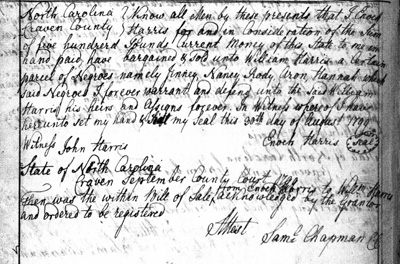 North Carolina } Know all Men by these presents that I Enoch
Craven County } Harris for and in Consideration of the Sum
of five hundred Pounds Current Money of this State to me in
hand paid, have bargained & sold unto William Harris a Certain
parcel of Negroes namely Jinney Naney Rody Aron Hannah which
said Negroes I forever warrant and defend unto the said William
Harris his heirs and Assigns forever In Witness whereof I have
hereunto set my hand & Seal this 30th day of August 1790
Witness John Harris Enoch Harris (Seal)
State of North Carolina
Craven September County Court
Then was the within Bill of Sale from Enoch Harris to Willm Harris acknowledged by the Grantor
and ordered to be registered
Attest
Saml Chapman